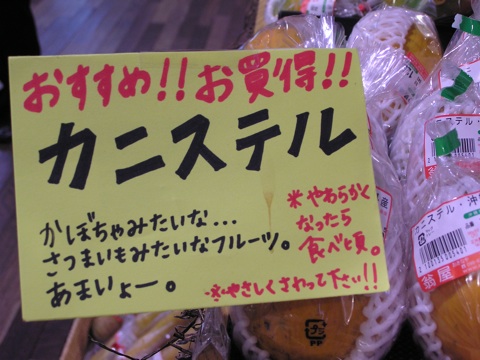 おすすめ!!お買得!!
カニステル
かぼちゃみたいな...
さつまいもみたいなフルーツ。
あまいよー。
※やわらかく
なったら
食べ頃。
※やさしくさわって下さい!!
カニステル・沖
カニステル・沖
プラ
PP